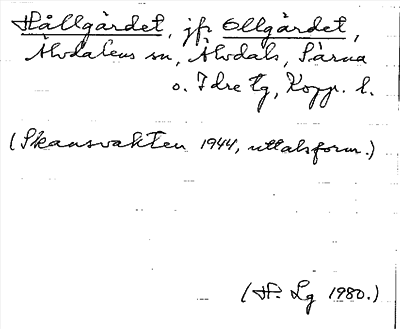 Hållgärdet, jfr Ollgärdet,
Älvdalens sn, Älvdals, Särna
o. Idre tg, Kopp. l.
(Skansvakten 1944, uttalsform.)
(H. Lg 1980.)